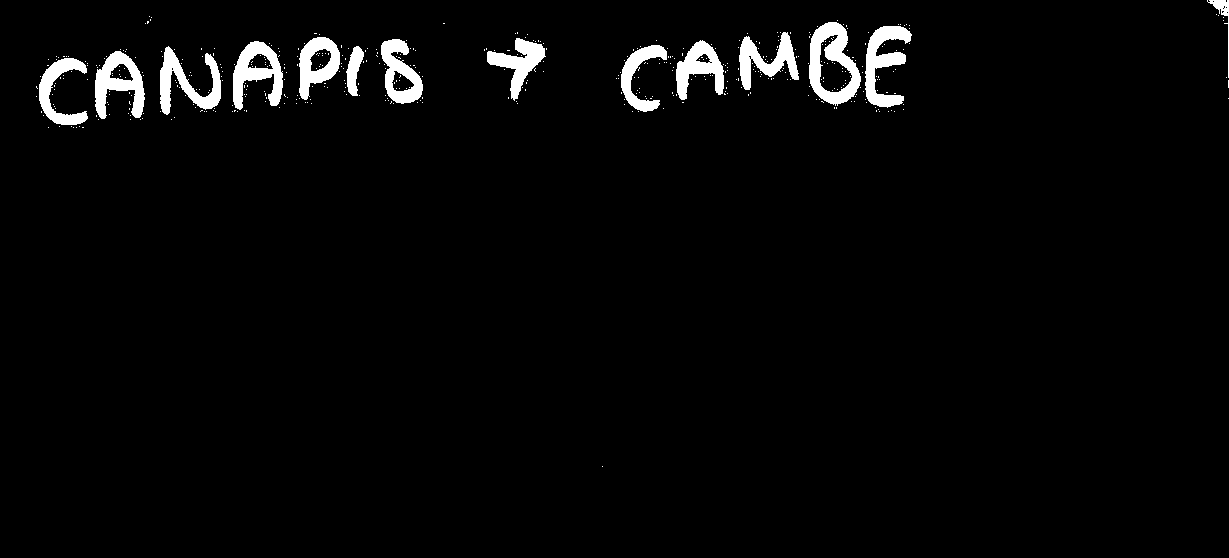 CANAPIS → CAMBE